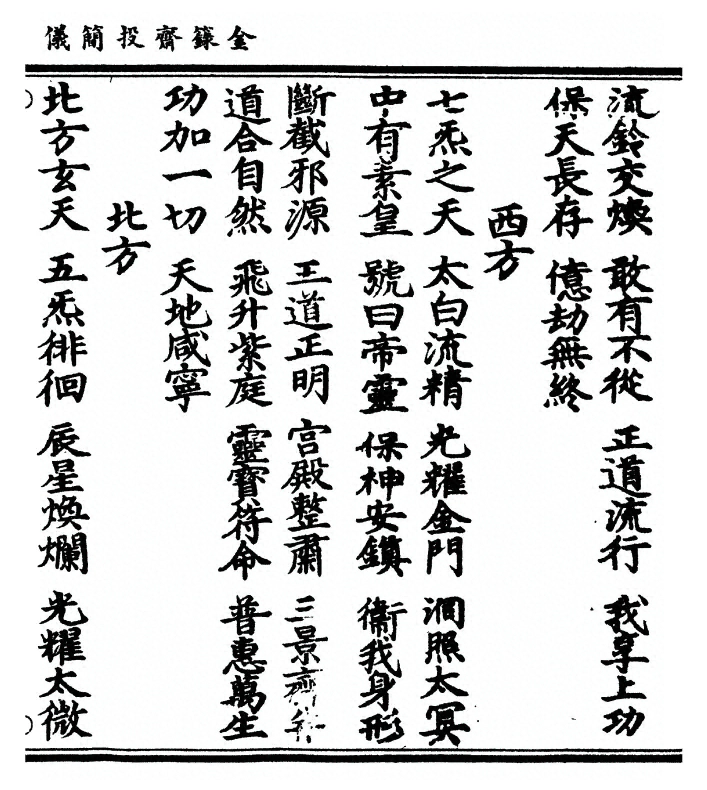 金籙齊投簡儀
流鈴交煥 敢有不從 正道流行 我享上功
保天長存 億劫無終
西方
七炁之天 太白流精 光耀金門 洞照太冥
中有素皇 號曰帝靈 保神安鎮 衛我身形
斷截邪源 王道正明 宮殿整肅 三景齊
道合自然 飛升紫庭 靈寶符命 普惠萬生
功加一切 天地咸寧
北方
北方玄天 五炁徘徊 辰星煥爛 光耀太微